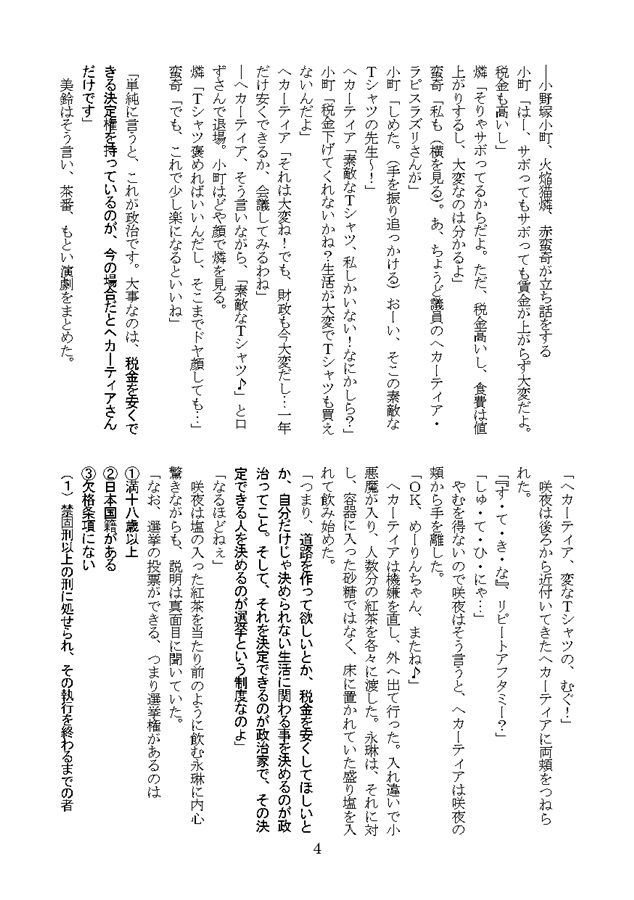 ―小野塚小町、火焔猫燐、赤蛮奇が立ち話をする
小町「はー、サボってもサボっても賃金が上がらず大変だよ。
税金も高いし」
燐「そりゃサボってるからだよ。ただ、税金高いし、食費は値
上がりするし、大変なのは分かるよ」
蛮奇「私も（横を見る）。あ、ちょうど議員のヘカーティア・
ラピスラズリさんが」
小町「しめた。（手を振り追っかける）おーい、そこの素敵な
Ｔシャツの先生〜！」
ヘカーティア「素敵なＴシャツ、私しかいない！なにかしら？」
小町「税金下げてくれないかね？生活が大変でＴシャツも買え
ないんだよ」
ヘカーティア「それは大変ね！でも、財政も今大変だし…一年
だけ安くできるか、会議してみるわね」
―ヘカーティア、そう言いながら、「素敵なＴシャツ♪」と口
ずさんで退場。小町はどや顔で燐を見る。
燐「Ｔシャツ褒めればいいんだし、そこまでドヤ顔しても…」
蛮奇「でも、これで少し楽になるといいね」
「単純に言うと、これが政治です。大事なのは、税金を安くで
きる決定権を持っているのが、今の場合だとヘカーティアさん
だけです」
美鈴はそう言い、茶番、もとい演劇をまとめた。
「ヘカーティア、変なＴシャツの、むぐ！」
咲夜は後ろから近付いてきたヘカーティアに両頬をつねら
れた。
「『す・て・き・な』、リピートアフタミー？」
「しゅ・て・ひ・にゃ…」
やむを得ないので咲夜はそう言うと、ヘカーティアは咲夜の
頬から手を離した。
「ＯＫ、めーりんちゃん、またね♪」
ヘカーティアは機嫌を直し、外へ出て行った。入れ違いで小
悪魔が入り、人数分の紅茶を各々に渡した。永琳は、それに対
し、容器に入った砂糖ではなく、床に置かれていた盛り塩を入
れて飲み始めた。
「つまり、道路を作って欲しいとか、税金を安くしてほしいと
か、自分だけじゃ決められない生活に関わる事を決めるのが政
治ってこと。そして、それを決定できるのが政治家で、その決
定できる人を決めるのが選挙という制度なのよ」
「なるほどねぇ」
咲夜は塩の入った紅茶を当たり前のように飲む永琳に内心
驚きながらも、説明は真面目に聞いていた。
「なお、選挙の投票ができる、つまり選挙権があるのは
①満十八歳以上
②日本国籍がある
③欠格条項にない
（１）禁固刑以上の刑に処せられ、その執行を終わるまでの者
4